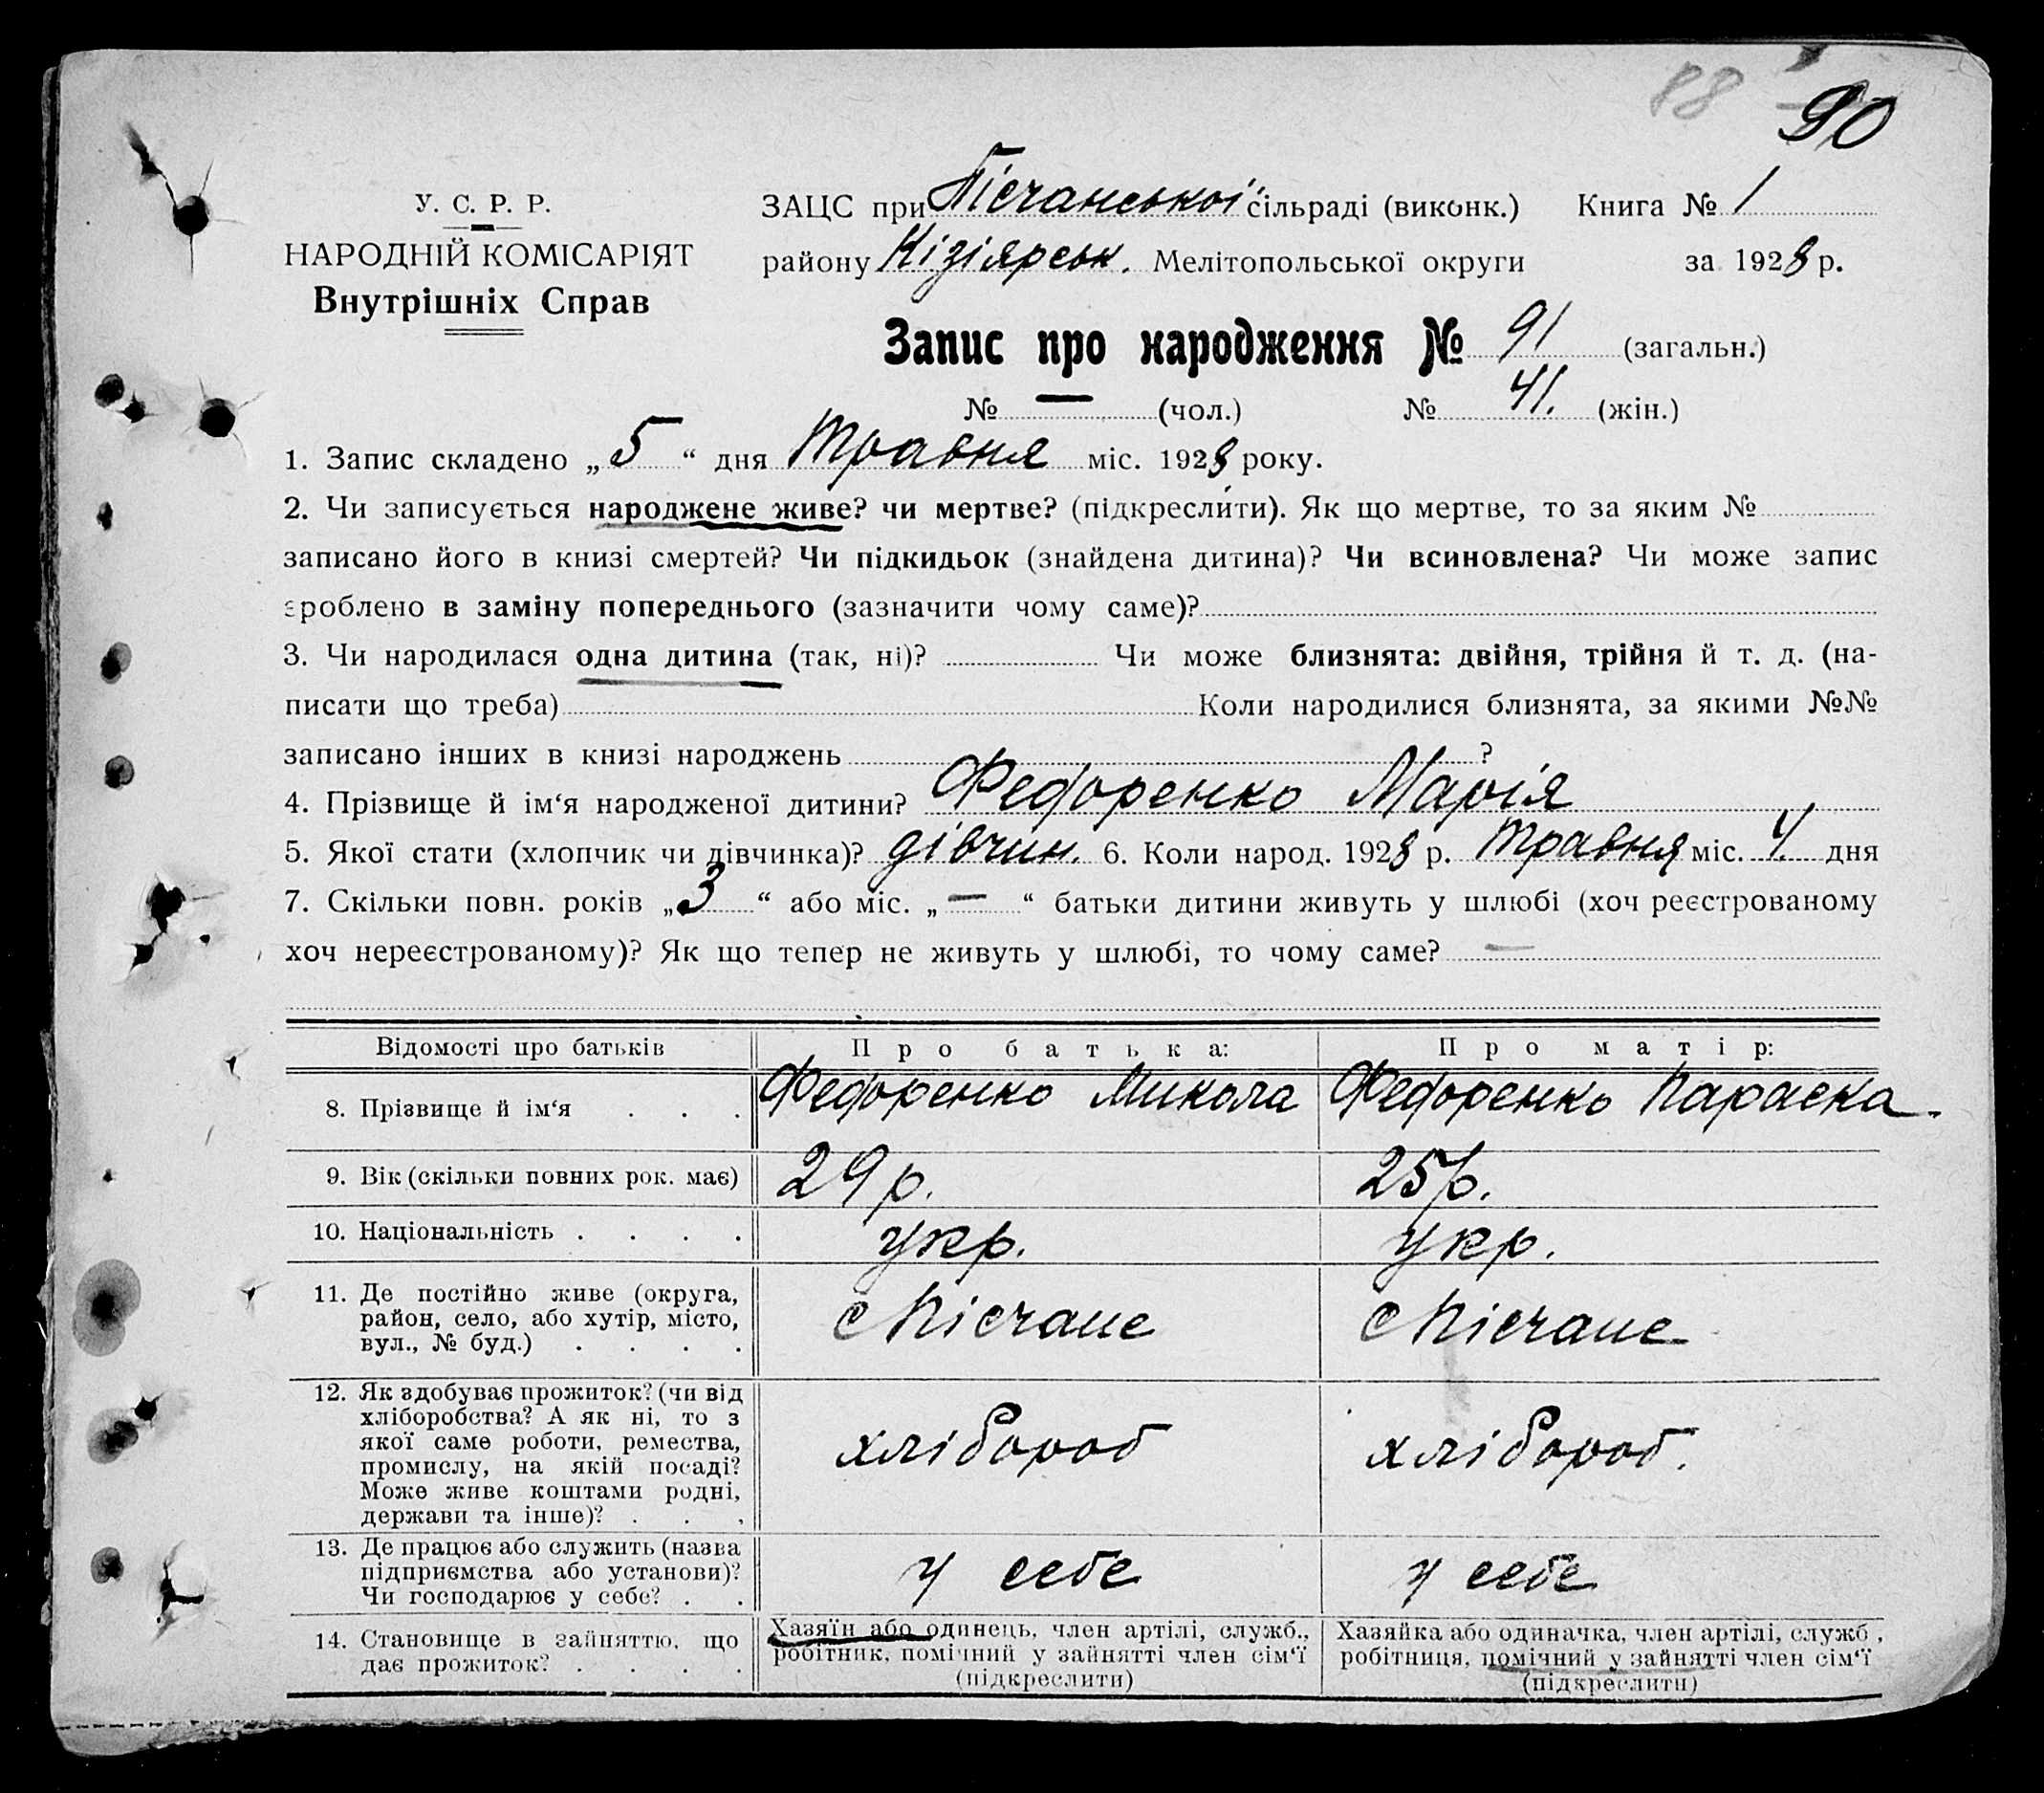 88 90
У. С. Р. Р.
НАРОДНІЙ КОМІСАРІЯТ
Внутрішніх Справ
ЗАЦС при Пісчанської сільраді (виконк.) Книга № 1
району Кізіярськ. Мелітопольської округи за 1928 р.
Запис про народження № 91 (загальн.)
№ — (чол.) № 41. (жін.)
1. Запис складено „ 5 “ дня Травня міс. 1928 року.
2. Чи записується народжене живе? чи мертве? (підкреслити). Як що мертве, то за яким №
записано його в книзі смертей? Чи підкидьок (знайдена дитина)? Чи всиновлена? Чи може запис
зроблено в заміну попереднього (зазначити чому саме)?
3. Чи народилася одна дитина (так, ні)? Чи може близнята: двійня, трійня й т. д. (на-
писати що треба) Коли народилися близнята, за якими №№
записано інших в книзі народжень ?
4. Прізвище й ім‘я народженої дитини? Федоренко Марія
5. Якої стати (хлопчик чи дівчинка)? дівчин. 6. Коли народ. 1928 р. Травня міс. 4 дня
7. Скільки повн. років „ 3 “ або міс. „ — “ батьки дитини живуть у шлюбі (хоч реєстрованому
хоч нереєстрованому)? Як що тепер не живуть у шлюбі, то чому саме? —
Відомості про батьків Про батька: Про матір:
8. Прізвище й ім‘я . . . Федоренко Микола Федоренко Параска.
9. Вік (скільки повних рок. має) 29 р. 25 р.
10. Національність . . . . укр. укр.
11. Де постійно живе (округа,
район, село, або хутір, місто,
вул., № буд.) . . . . с Пісчане с Пісчане
12. Як здобуває прожиток? (чи від
хліборобства? А як ні, то з
якої саме роботи, ремества,
промислу, на якій посаді?
Може живе коштами родні,
держави та інше)? . . . хлібороб хлібороб.
13. Де працює або служить (назва
підприємства або установи)?
Чи господарює у себе? . . у себе у себе
14. Становище в зайняттю, що
дає прожиток? . . . .
Хазяїн або одинець, член артілі, служб.,
робітник, помічний у зайнятті член сім‘ї
(підкреслити)
Хазяйка або одиначка, член артілі, служб.,
робітниця, помічний у зайнятті член сім‘ї
(підкреслити)